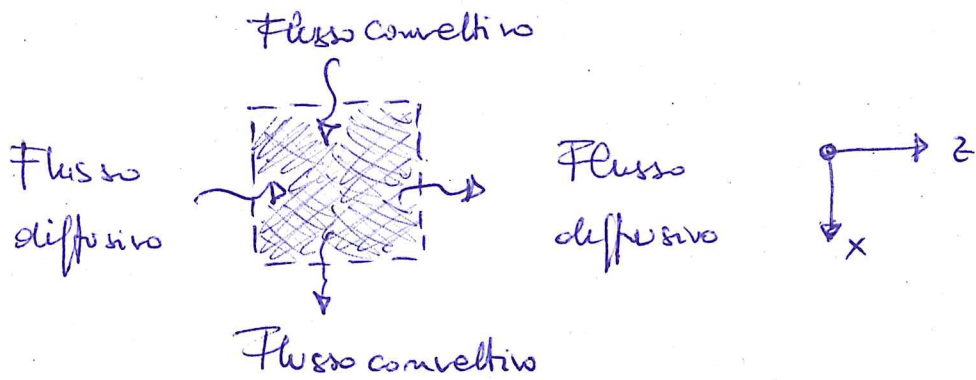 Flusso convettivo
Flusso
diffusivo
Flusso
diffusivo
z
x
Flusso convettivo